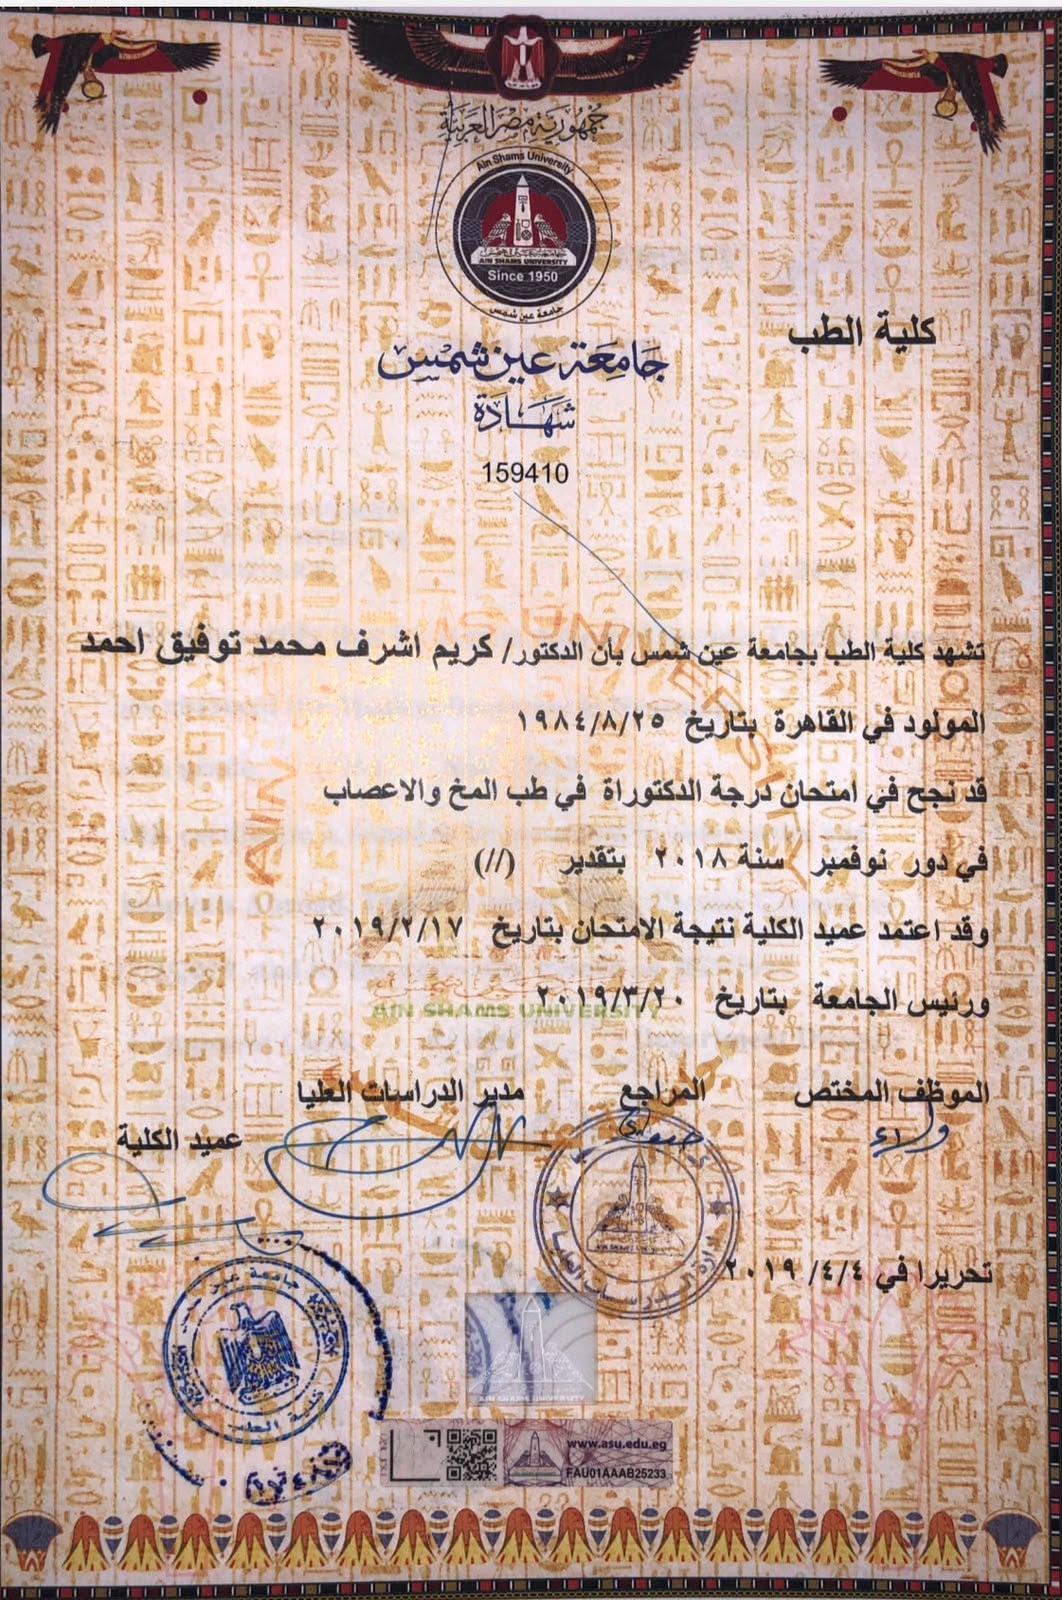 جمهورية مصر العربية
Ain Shams University
AIN SHAMS UNIVERSITY
Since 1950
جامعة عين شمس
كلية الطب
جامعة عين شمس
شهادة
159410
تشهد كلية الطب بجامعة عين شمس بأن الدكتور/ كريم اشرف محمد توفيق احمد
المولود في القاهرة بتاريخ ١٩٨٤/٨/٢٥
قد نجح في امتحان درجة الدكتوراة في طب المخ والاعصاب
في دور نوفمبر سنة ٢٠١٨ بتقدير (//)
وقد اعتمد عميد الكلية نتيجة الامتحان بتاريخ ٢٠١٩/٢/١٧
ورئيس الجامعة بتاريخ ٢٠١٩/٣/٢٠
AIN SHAMS UNIVERSITY
الموظف المختص المراجع مدير الدراسات العليا
عميد الكلية
ولاء
تحريرا في ٢٠١٩/٤/٤
جامعة عين شمس
كلية الطب
AIN SHAMS UNIVERSITY
www.asu.edu.eg
FAU01AAAB25233